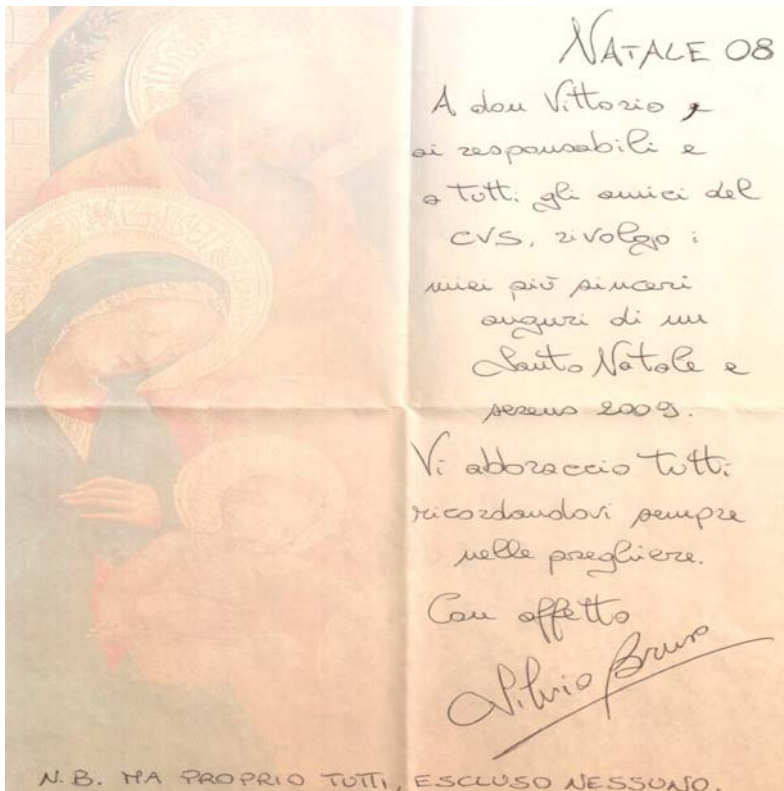 NATALE 08
A don Vittorio e
ai responsabili e
a tutti gli amici del
CVS, rivolgo i
miei più sinceri
auguri di un
Santo Natale e
sereno 2009.
Vi abbraccio tutti
ricordandovi sempre
nelle preghiere.
Con affetto
Silvio Bruno
N.B. MA PROPRIO TUTTI, ESCLUSO NESSUNO.